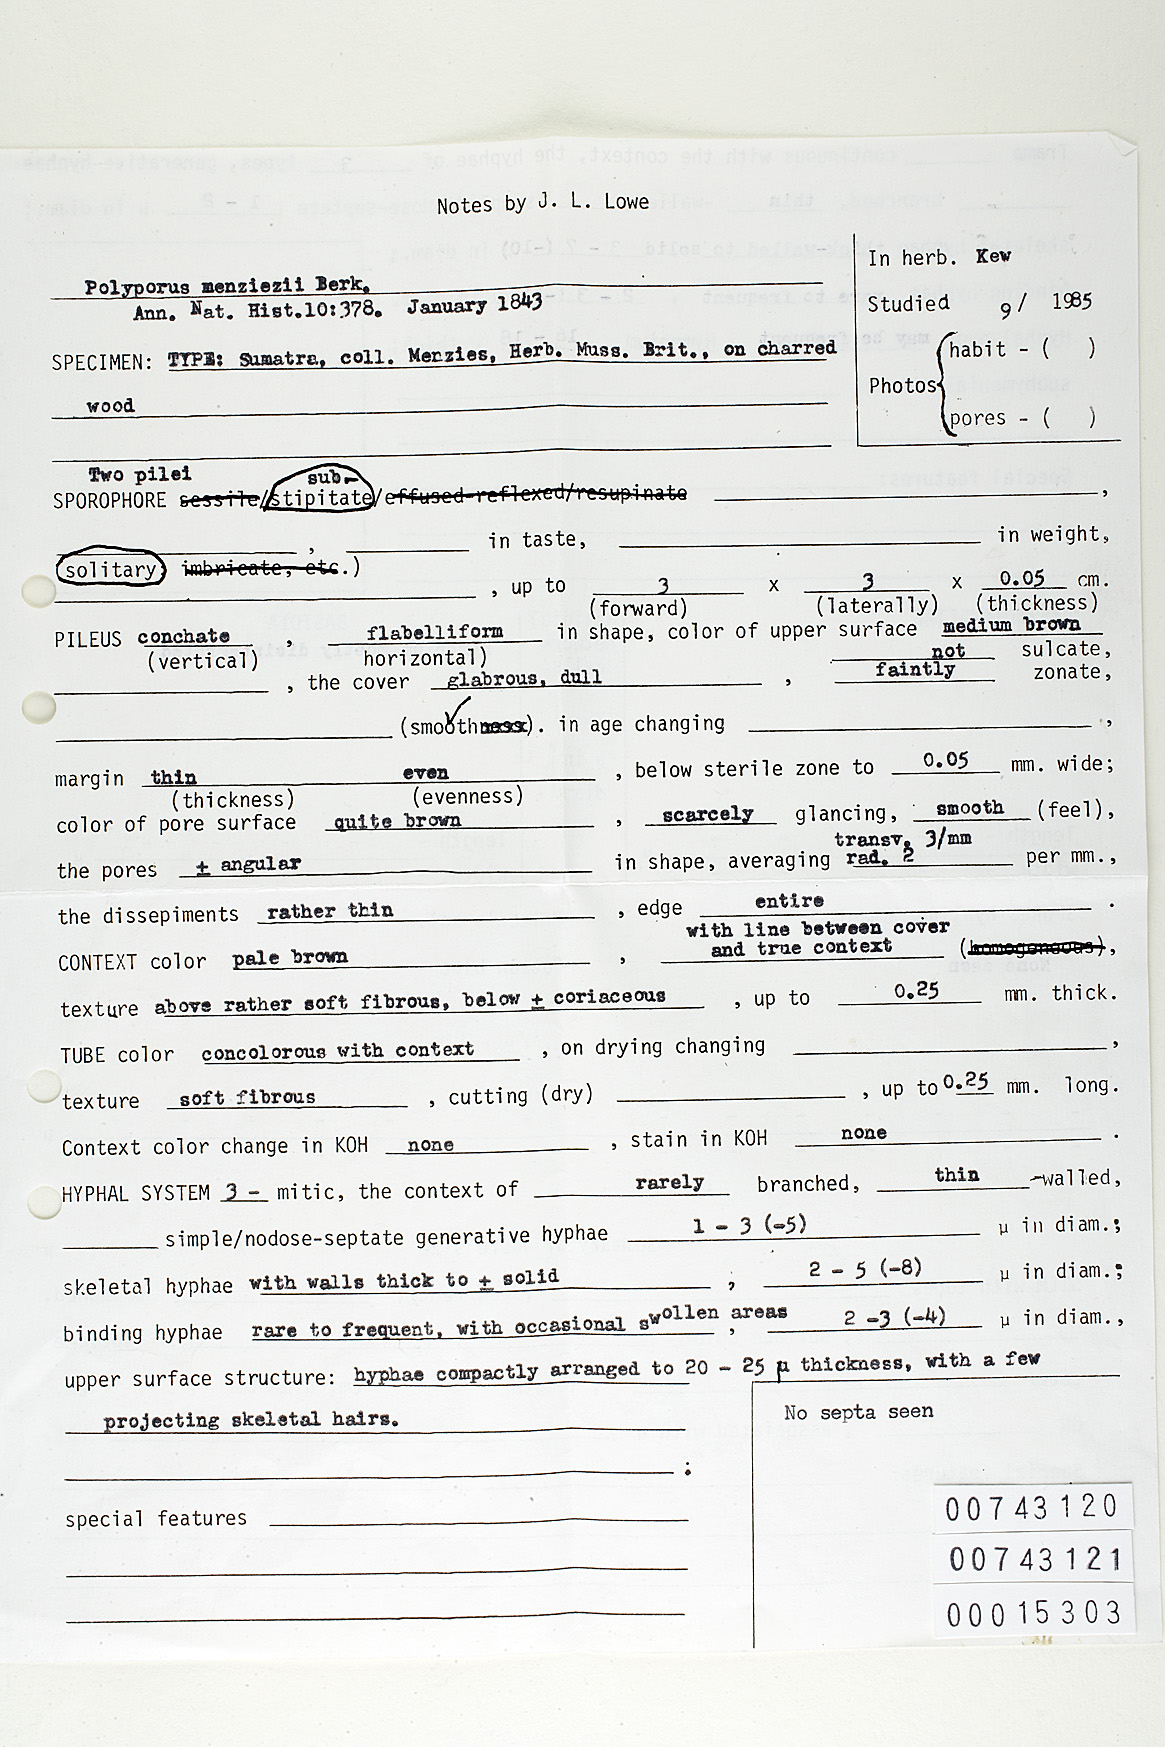 Notes by J. L. Lowe
In herb. Kew
Polyporus menziezii Berk.
Ann. Nat. Hist.10:378. January 1843
Studied 9/ 1985
SPECIMEN: TYPE: Sumatra, coll. Menzies, Herb. Muss. Brit., on charred
wood
Photos
habit - ( )
pores - ( )
Two pilei
sub-
SPOROPHORE sessile/stipitate/effused-reflexed/resupinate ,
, in taste, in weight,
solitary imbricate, etc.)
, up to 3 x 3 x 0.05 cm.
(forward) (laterally) (thickness)
PILEUS conchate , flabelliform in shape, color of upper surface medium brown
(vertical) horizontal) not sulcate,
, the cover glabrous, dull , faintly zonate,
(smoothness). in age changing ,
margin thin even , below sterile zone to 0.05 mm. wide;
(thickness) (evenness)
color of pore surface quite brown , scarcely glancing, smooth (feel),
transv. 3/mm
the pores ± angular in shape, averaging rad. 2 per mm.,
the dissepiments rather thin , edge entire .
with line between cover
CONTEXT color pale brown , and true context (homogeneous),
texture above rather soft fibrous, below ± coriaceous , up to 0.25 mm. thick.
TUBE color concolorous with context , on drying changing ,
texture soft fibrous , cutting (dry) , up to 0.25 mm. long.
Context color change in KOH none , stain in KOH none .
HYPHAL SYSTEM 3 - mitic, the context of rarely branched, thin -walled,
simple/nodose-septate generative hyphae 1 - 3 (-5) µ in diam.;
skeletal hyphae with walls thick to ± solid , 2 - 5 (-8) µ in diam.;
binding hyphae rare to frequent, with occasional swollen areas , 2 -3 (-4) µ in diam.,
upper surface structure: hyphae compactly arranged to 20 - 25 µ thickness, with a few
projecting skeletal hairs.
;
No septa seen
special features
00743120
00743121
00015303